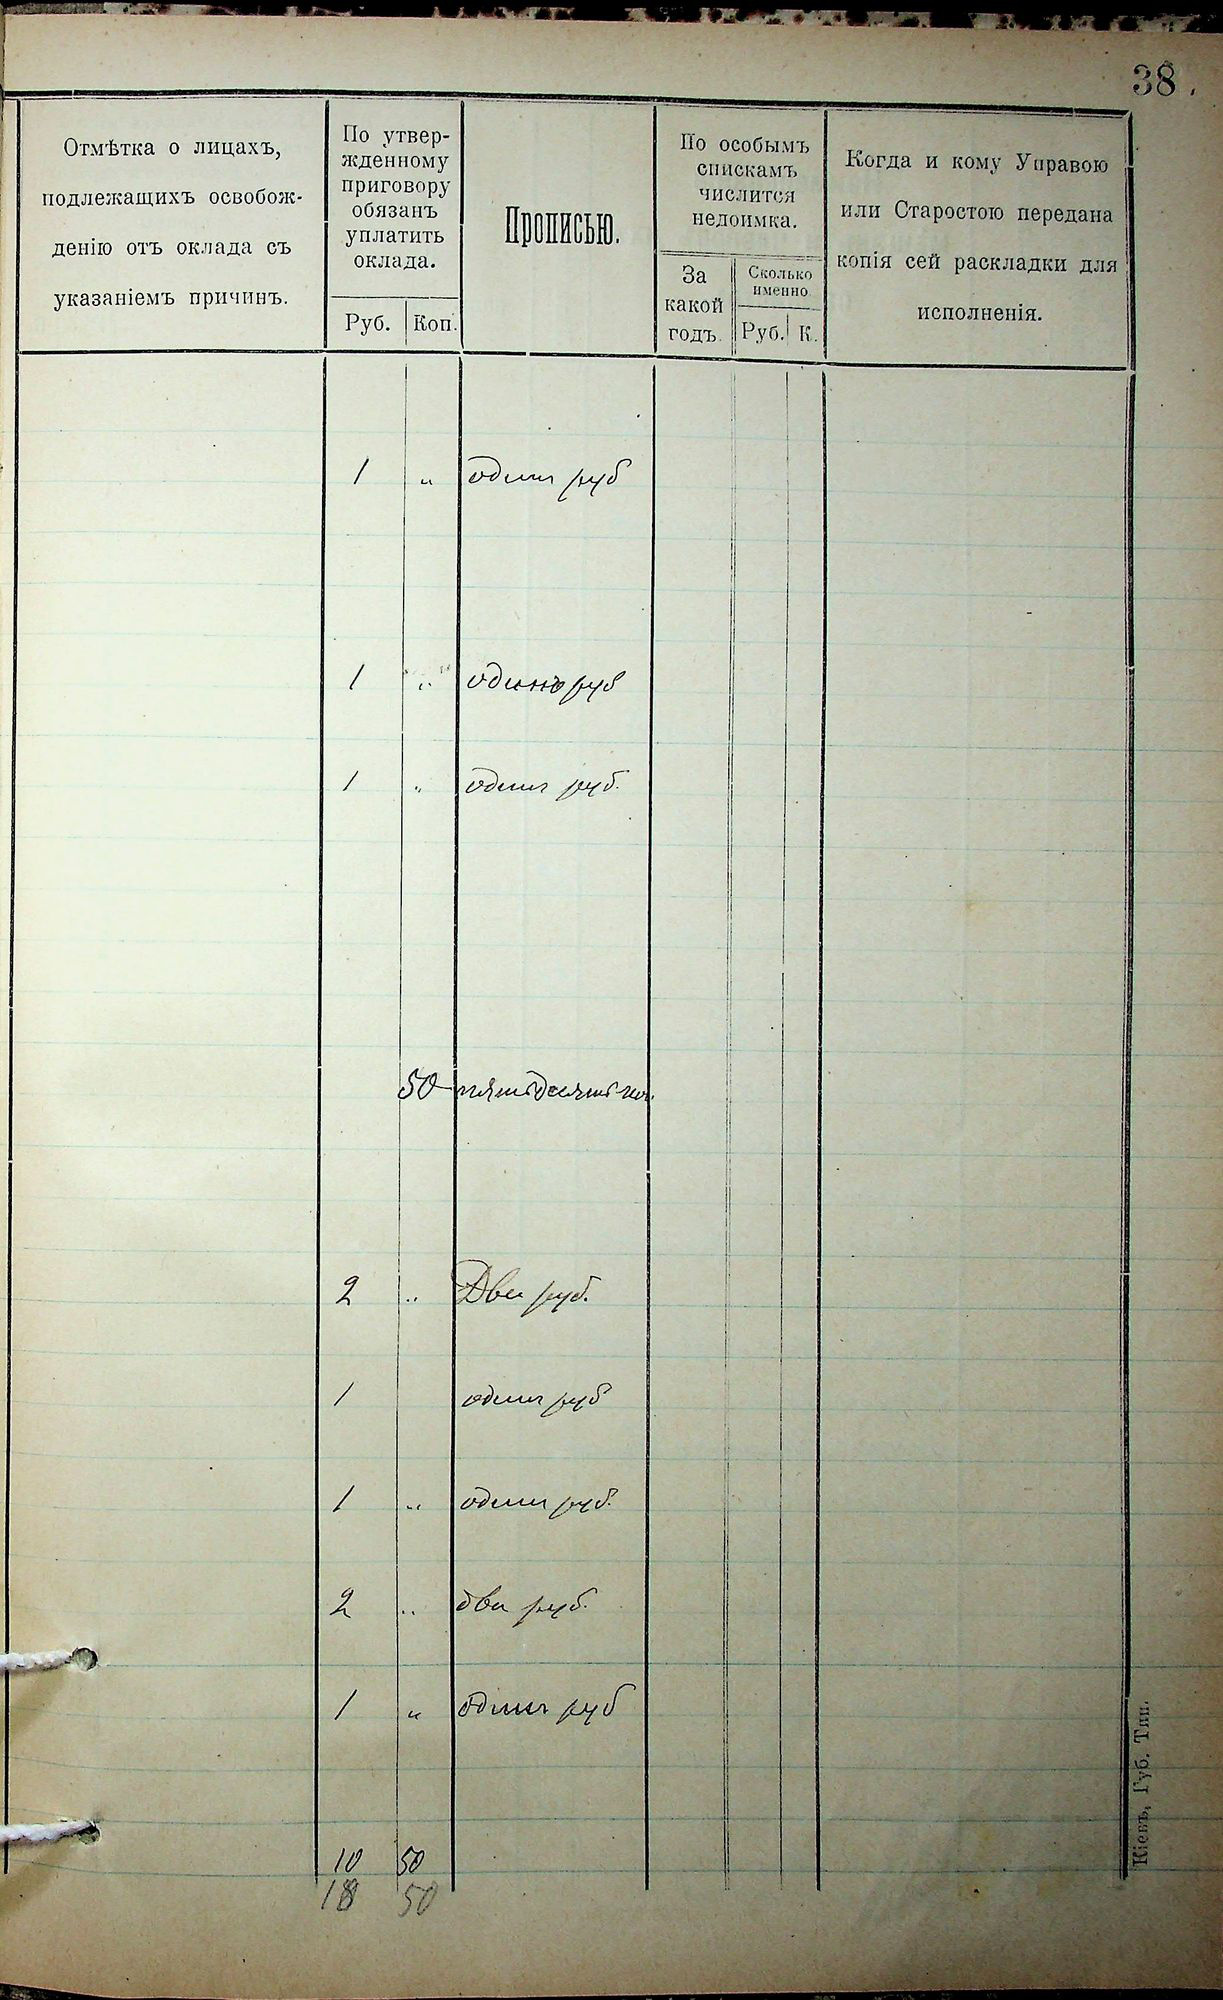 38.
Отмѣтка о лицахъ,
подлежащихъ освобож-
денію отъ оклада съ
указаніемъ причинъ.
По утвер-
жденному
приговору
обязанъ
уплатить
оклада.
Руб. Коп.
Прописью.
По особымъ
спискамъ
числится
недоимка.
За
какой
годъ.
Сколько
именно.
Руб. К.
Когда и кому Управою
или Старостою передана
копія сей раскладки для
исполненія.
1 " один руб
1 " одинъ руб
1 " один руб.
50 пятьдесятъ коп.
2 " Два руб.
1 один руб
1 " один руб.
2 " два руб.
1 " один руб
10 50
18 50
Кіевъ, Губ. Тип.